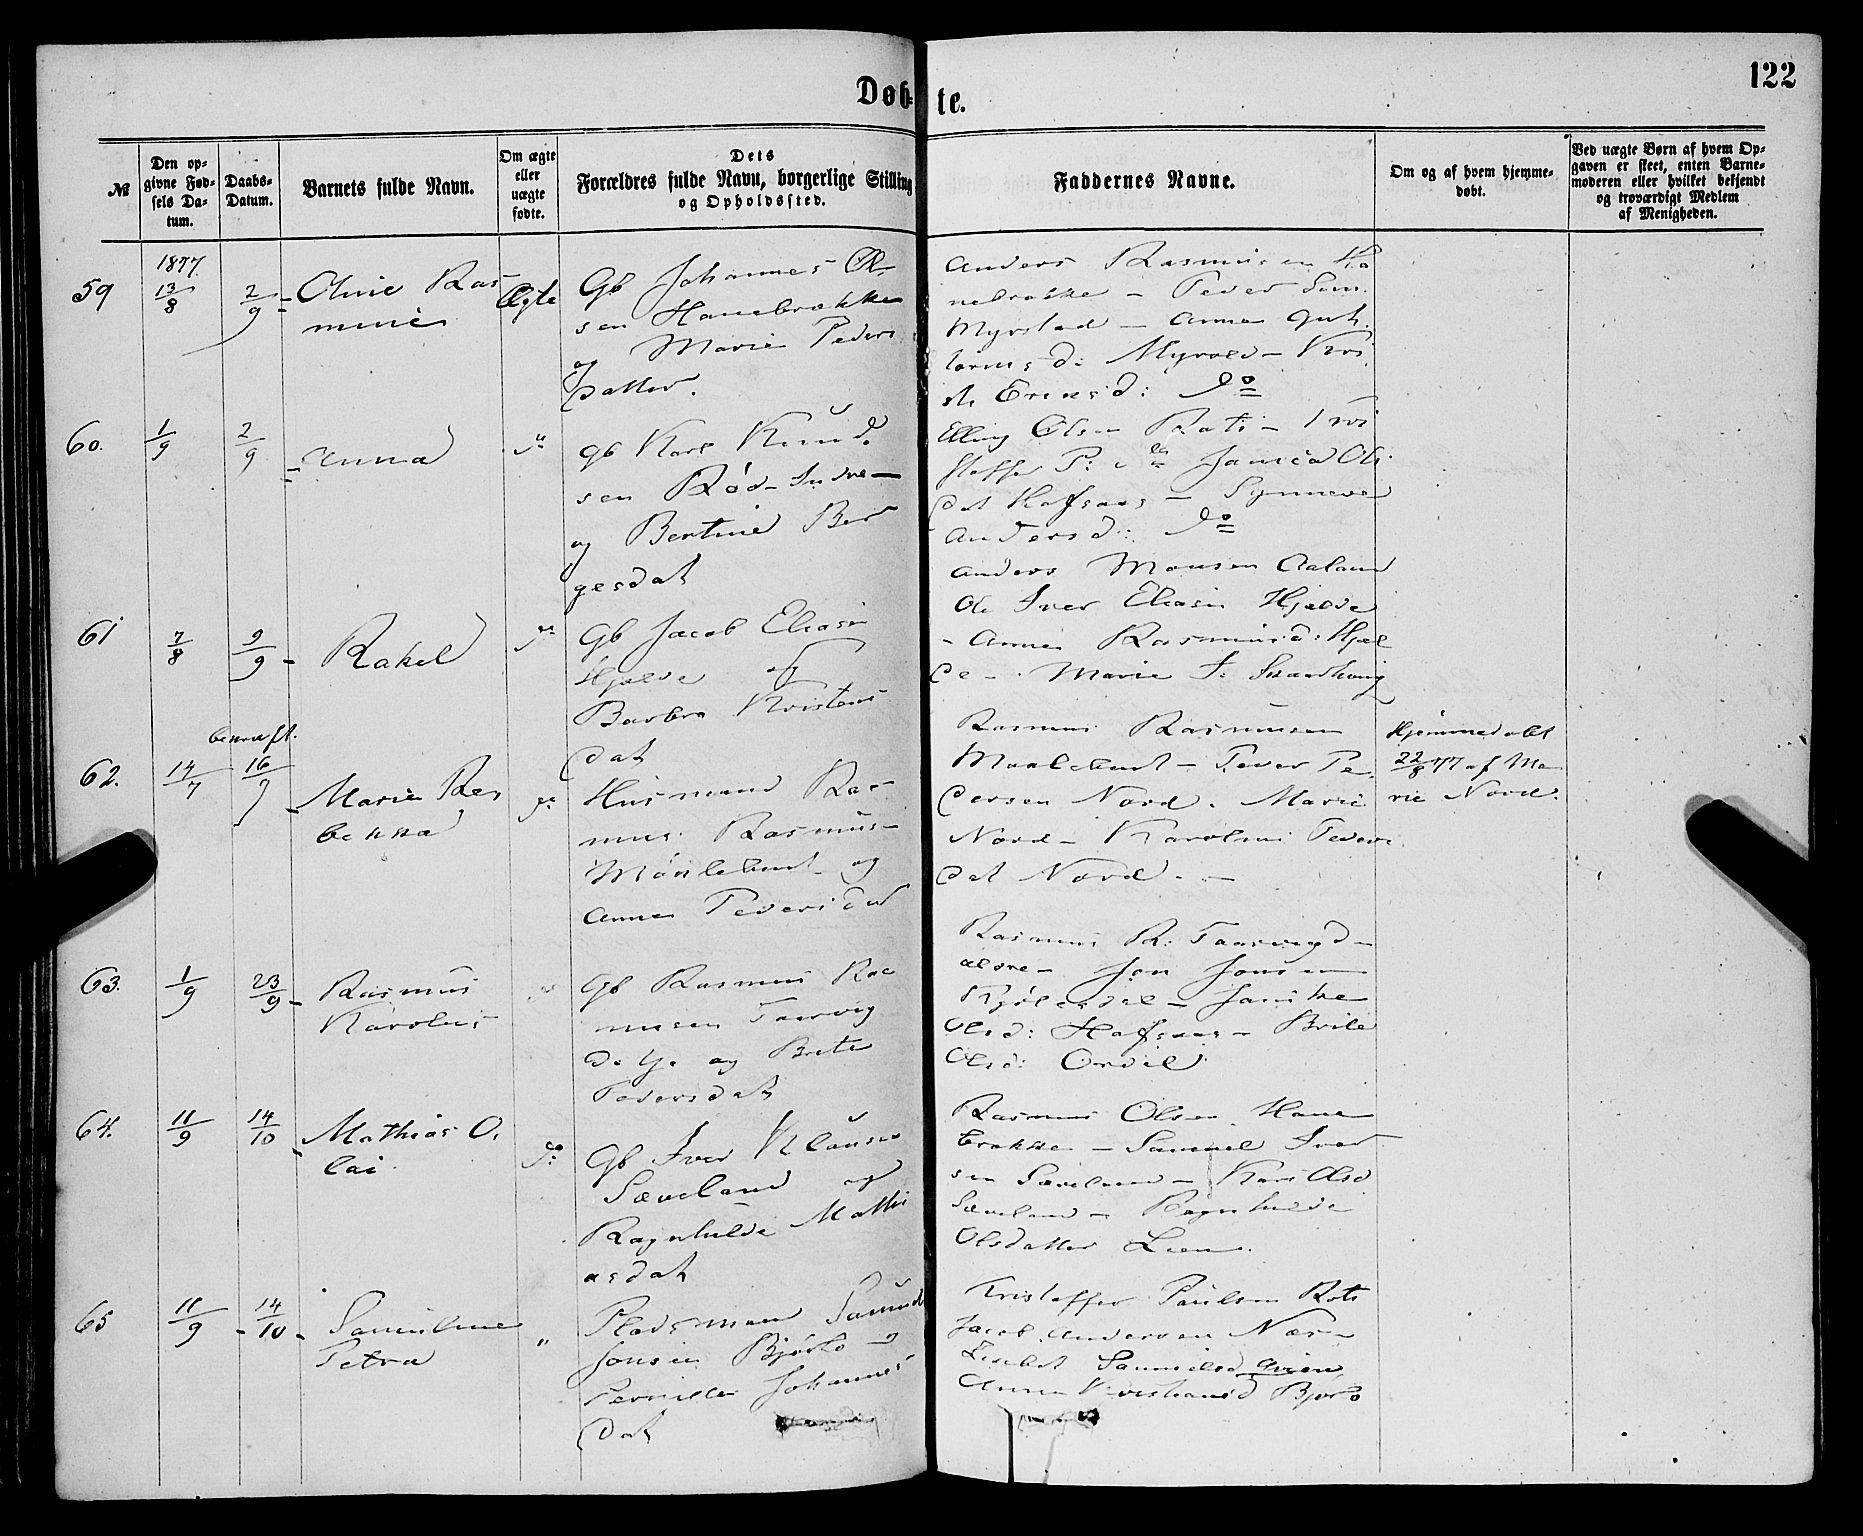 Døb=
te.
122
№
Den op=
givne Fød=
sels Da=
tum.
Daabs=
Datum.
Barnets fulde Navn.
Om ægte
eller
uægte
fødte.
Dets
Forældres fulde Navn, borgerlige Stilling
og Opholdssted.
Faddernes Navne.
Om og af hvem hjemme=
døbt.
Ved uægte Børn af hvem Op=
gaven er skeet, enten Barne=
moderen eller hvilket bekjendt
og troværdigt Medlem
af Menigheden.
1877.
59
13/8
2/9
Oline Ras
mine
Ægte
Gb Johannes Ol
sen Hanebrække
og Marie Peders
datter.
Anders Rasmusen Ha
nebrække – Peder
Myrstad – Anne
d: Myrold –
d: Do
60.
1/9
2/9
Anna
do
Gb Karl Knud
sen Rød Indre
og Bertine Ber
gesdat
Elling Olsen Roti – Kri
stoffer P:
dat Hafsaas – Synneve
Andersd: Do
61
7/8
9/9
Rakel
do
Gb Jacob Eliasen
Hjelde og
Barbro Kristens
dat
Anders Monsen Aaland
Ole Iver Eliasen Hjelde
– Anne Rasmusd: Hjel
de – Marie
62.
14/7
bekræft.
16/9
Marie Re
bekka
do
Husmand Ras
mus Rasmus
og
Anne Pedersdat
Rasmus Rasmusen
– Peder Pe
dersen Nord. Marie
Nord – Karoline Peders
dat Nord. –
Hjemmedøbt
22/8 77 af Ma
rie Nord.
63.
1/9
23/9
Rasmus
Karolus
do
Gb Rasmus Ras
musen Taarvig
og Brite
Pedersdat
Rasmus R:
Jon Jonsen
Olsd: Hafsaas – Brite
Olsd: Ordal
64.
11/9
14/10
Mathias O
lai
do
Gb Iver Klausen
Sæveland og
Ragnhilde Mathi
asdat
Rasmus Olsen Hane
brække – Samuel Iver
sen Sæveland – Kari Olsd
Sæveland – Ragnhilde
Olsdatter Lien.
65
11/9
14/10
Samuline
Petra
"
Pladsmand Samuel
Jonsen Bjørlo og
Pernille Johannes
dat
Kristoffer Paulsen Roti
Jacob Andersen Nær
Lisebet Samuelsd
Anne Kristiansd Bjørlo